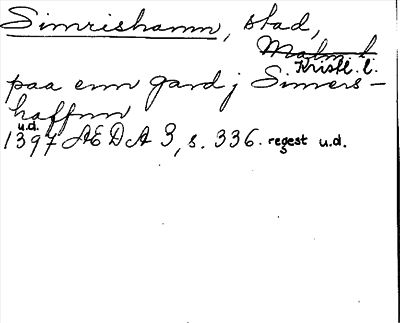 Simrishamn, stad,
Malm l
Kristl. l.
paa enn gard j Simers-
haffnn
u.d.
1397 ÆDA 3, s. 336. regest u.d.